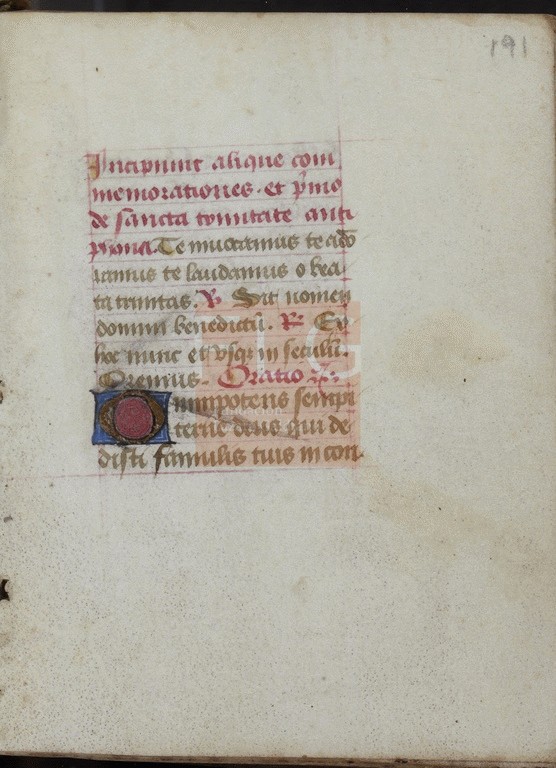 191
Incipiunt alique com
memorationes. et p̄mo
de sancta trinitate anti
phona. Te inuocamus te ado
ramus te laudamus o bea
ta trinitas. ℣. Sit nomen
domini benedictū. ℟. Ex
hoc nunc et vsqꝫ in seculū.
Oremus. Oratio
Omnipotens sempi
terne deus qui de
disti famulis tuis in con